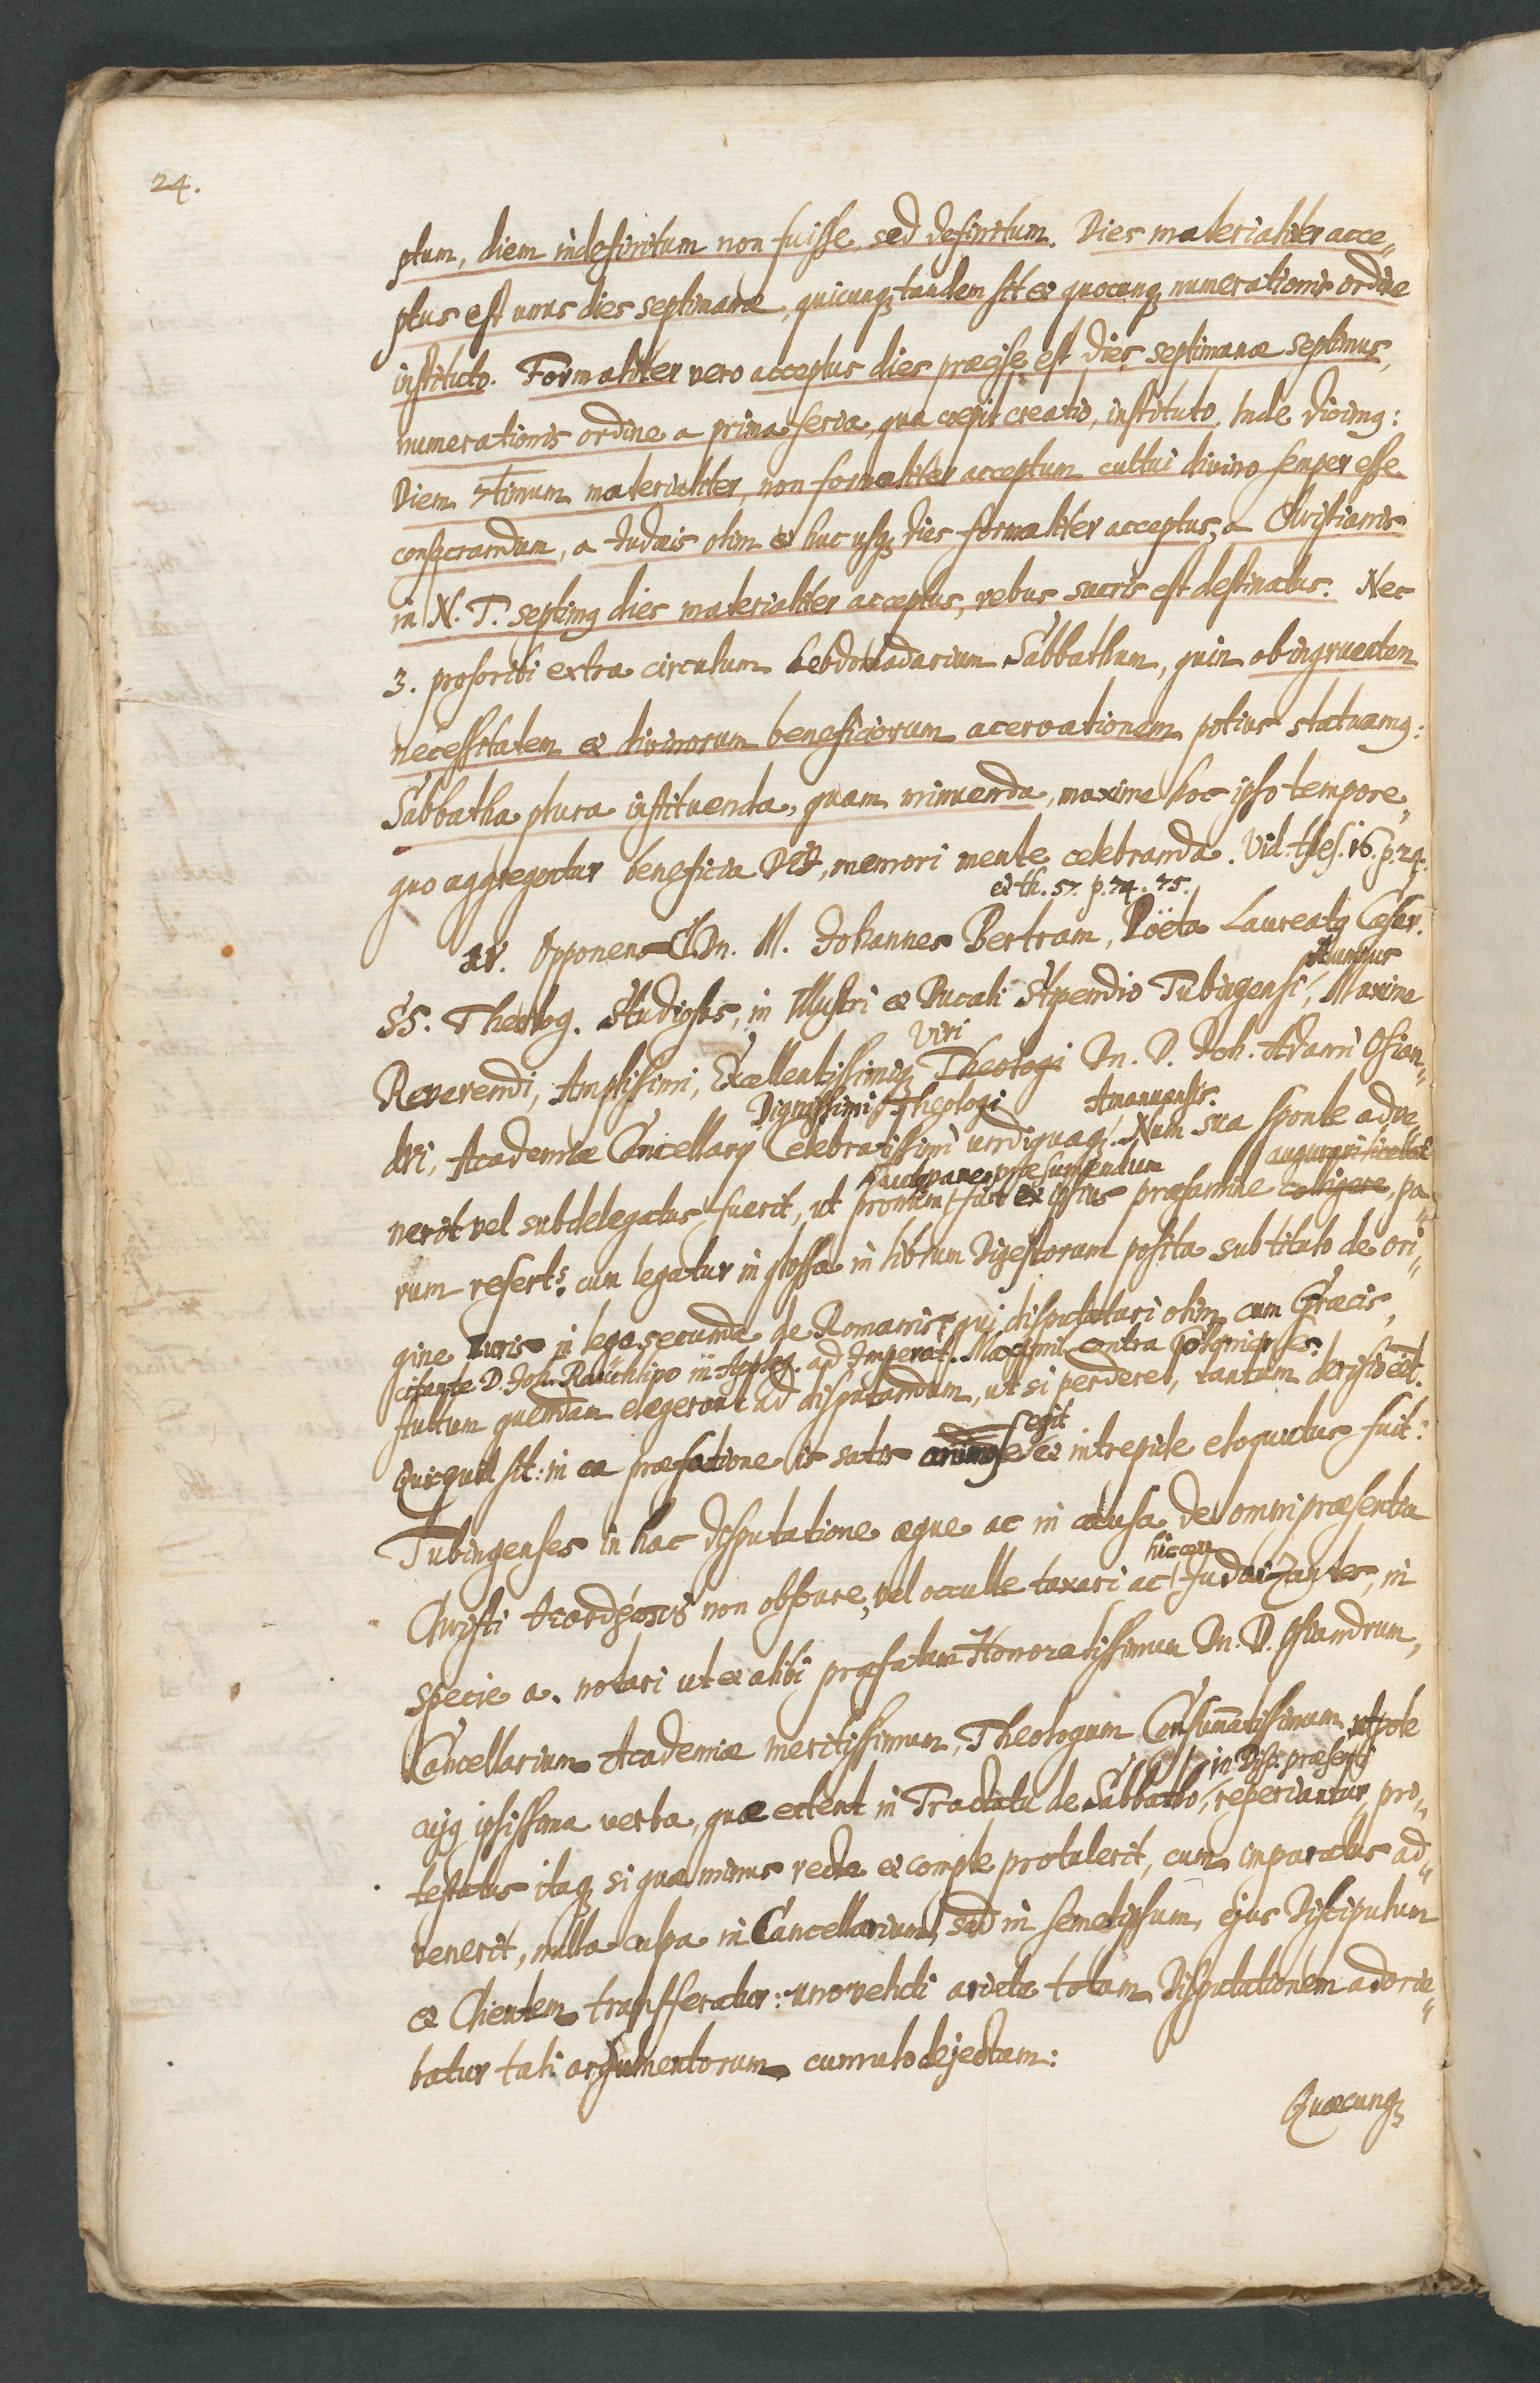 24.
ptum, diem indefinitum non fuisse, sed definitum. Dies materialiter acce„
ptus est unus dies septimanæ, quicunq tandem sit et quocunq numerationis ordine
instituto. Formaliter vero acceptus dies præcise est dies septimanæ septimus,
numerationis ordine a prima feria, qua coepit creatio, instituto. Inde dicimq:
Diem 7timum materialiter, non formaliter acceptum cultui divino semper esse
consecrandum, a Judæis olim et huc usq dies formaliter acceptus, a Christianis
in N. T. septimq dies materialiter acceptus, rebus sacris est destinatus. Nec
3. proscribi extra circulum hebdomadarium Sabbathum, quin ob ingruentem
necessitatem et divinorum beneficiorum acervationem potius statuamq:
Sabbatha plura instituenda, quam minuenda, maxime hoc ipso tempore,
quo aggregentur beneficia Dei, memori mente celebranda. Vid. thes. 16. p. 24.
et th. 57. p. 74. 75.
Opponens Dn. M. Johannes Bertram, Poëta Laureatq Cæsar.
alumnus
SS. Theolog. Studiosus, in Illustri et Ducali Stipendio Tubingensi, Maxime
Viri
Reverendi, Amplissimi, Excellentissimiq Theologi Dn. D. Joh. Adami Osian„
Dignissimi Theologi Amanuensis.
dri, Academiæ Cancellarij Celebratissimi undiquaq. Num sua sponte adve„
præsumendum
nerit vel subdelegatus fuerit, ut pronum fuit ex ipsius præfamine colligere, pa„
rum refert: cum legatur in glossa in librum Digestorum posita sub titulo de ori„
gine Iuris in lege secunda de Romanis, qui disputaturi olim cum Græcis,
citante D. Joh. Raüchlino in Apolog. ad Imperat. Maximil. contra Colonienses:
stultum quendam elegerant ad disputandum, ut si perderet, tantum derisio eēt.
egit
Quicquid sit: in ea præfatione is satis animose et intrepide eloquutus fuit:
Tubingenses in hac disputatione æque ac in causa de omnipræsentia
hic ceu
Christi non obscure, vel occulte taxari ac Judaizantes, in
specie a. notari ut et alibi præfatum Honoratissimum Dn. D. Osiandrum,
Cancellarium Academiæ meritissimum, Theologum Consum̄atissimum, utpote
in Disp. præsenti
cujq ipsissima verba, quæ extent in Tractatu de Sabbatho, reperiantur, pro„
testatus itaq si qua minus recte et compte protulerit, cum imparatus ad„
venerit, nulla culpa in Cancellarium, sed in semetipsum, ejus Discipulum
et Clientem transferatur: uno veluti ariete totam Disputationem adorie„
batur tali argumentorum cumulo dejectam:
Quæcunq